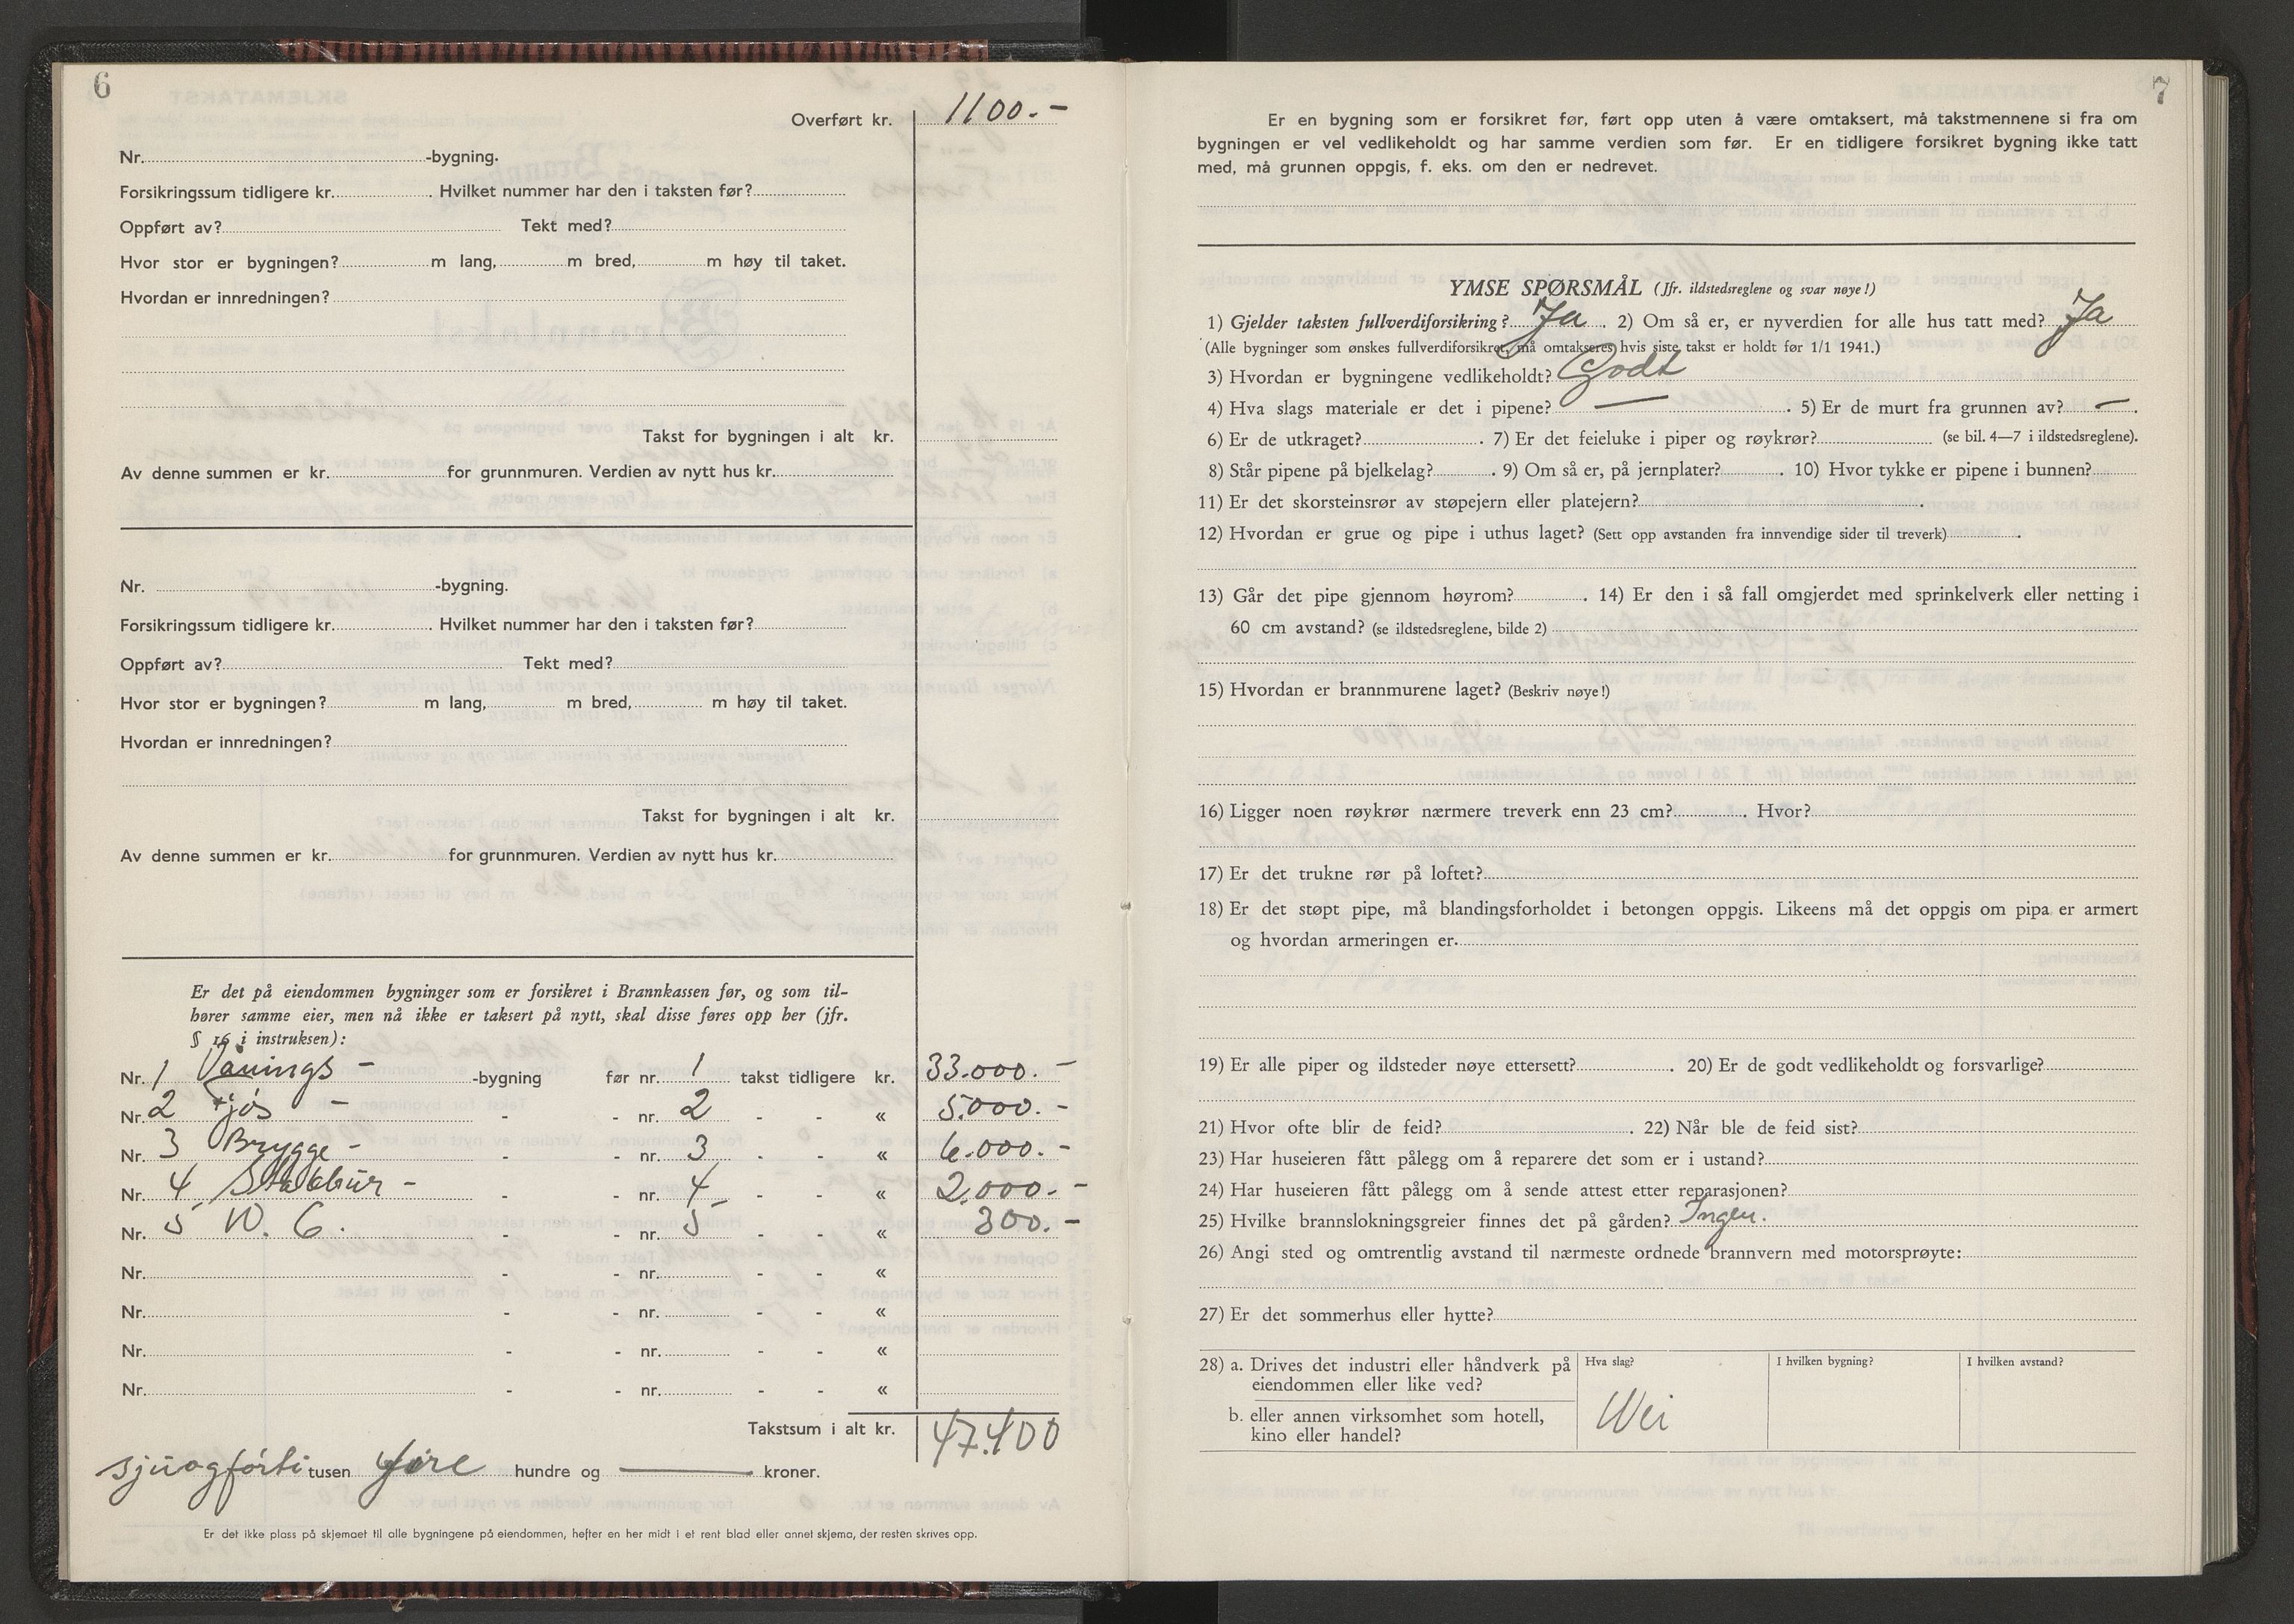 6
Overført kr. 1100.-
Nr. -bygning.
Forsikringssum tidligere kr. . Hvilket nummer har den i taksten før?
Oppført av? Tekt med?
Hvor stor er bygningen? m lang, m bred, m høy til taket.
Hvordan er innredningen?
Takst for bygningen i alt kr.
Av denne summen er kr. for grunnmuren. Verdien av nytt hus kr.
Nr. -bygning.
Forsikringssum tidligere kr. . Hvilket nummer har den i taksten før?
Oppført av? Tekt med?
Hvor stor er bygningen? m lang, m bred, m høy til taket.
Hvordan er innredningen?
Takst for bygningen i alt kr.
Av denne summen er kr. for grunnmuren. Verdien av nytt hus kr.
Er det på eiendommen bygninger som er forsikret i Brannkassen før, og som til-
hører samme eier, men nå ikke er taksert på nytt, skal disse føres opp her (jfr.
§ 16 i instruksen):
Nr. 1 Vånings - -bygning før nr. 1 takst tidligere kr. 33.000.-
Nr. 2 fjös - - - nr. 2 - - « 5.000.-
Nr. 3 Brygge - - - nr. 3 - - « 6.000.-
Nr. 4 Stabbur - - - nr. 4 - - « 2.000.-
Nr. 5 W. C. - - nr. 5 - - « 300.-
Nr. - - nr. - - «
Nr. - - nr. - - «
Nr. - - nr. - - «
Nr. - - nr. - - «
Takstsum i alt kr. 47.400
sjuogførti tusen fire hundre og — kroner.
Er det ikke plass på skjemaet til alle bygningene på eiendommen, hefter en her midt i et rent blad eller annet skjema, der resten skrives opp.
7
Er en bygning som er forsikret før, ført opp uten å være omtaksert, må takstmennene si fra om
bygningen er vel vedlikeholdt og har samme verdien som før. Er en tidligere forsikret bygning ikke tatt
med, må grunnen oppgis, f. eks. om den er nedrevet.
YMSE SPØRSMÅL (Jfr. ildstedsreglene og svar nøye!)
1) Gjelder taksten fullverdiforsikring? Ja . 2) Om så er, er nyverdien for alle hus tatt med? Ja
(Alle bygninger som ønskes fullverdiforsikret, må omtakseres hvis siste takst er holdt før 1/1 1941.)
3) Hvordan er bygningene vedlikeholdt? Godt
4) Hva slags materiale er det i pipene? — . 5) Er de murt fra grunnen av? — .
6) Er de utkraget? . 7) Er det feieluke i piper og røykrør? (se bil. 4—7 i ildstedsreglene).
8) Står pipene på bjelkelag? . 9) Om så er, på jernplater? . 10) Hvor tykke er pipene i bunnen?
11) Er det skorsteinsrør av støpejern eller platejern? .
12) Hvordan er grue og pipe i uthus laget? (Sett opp avstanden fra innvendige sider til treverk) .
13) Går det pipe gjennom høyrom? . 14) Er den i så fall omgjerdet med sprinkelverk eller netting i
60 cm avstand? (se ildstedsreglene, bilde 2)
15) Hvordan er brannmurene laget? (Beskriv nøye!)
16) Ligger noen røykrør nærmere treverk enn 23 cm? . Hvor?
17) Er det trukne rør på loftet?
18) Er det støpt pipe, må blandingsforholdet i betongen oppgis. Likeens må det oppgis om pipa er armert
og hvordan armeringen er.
19) Er alle piper og ildsteder nøye ettersett? . 20) Er de godt vedlikeholdt og forsvarlige?
21) Hvor ofte blir de feid? . 22) Når ble de feid sist?
23) Har huseieren fått pålegg om å reparere det som er i ustand?
24) Har huseieren fått pålegg om å sende attest etter reparasjonen?
25) Hvilke brannslokningsgreier finnes det på gården? Ingen.
26) Angi sted og omtrentlig avstand til nærmeste ordnede brannvern med motorsprøyte:
27) Er det sommerhus eller hytte?
28) a. Drives det industri eller håndverk på Hva slag? I hvilken bygning? I hvilken avstand?
eiendommen eller like ved?
b. eller annen virksomhet som hotell, Nei
kino eller handel?